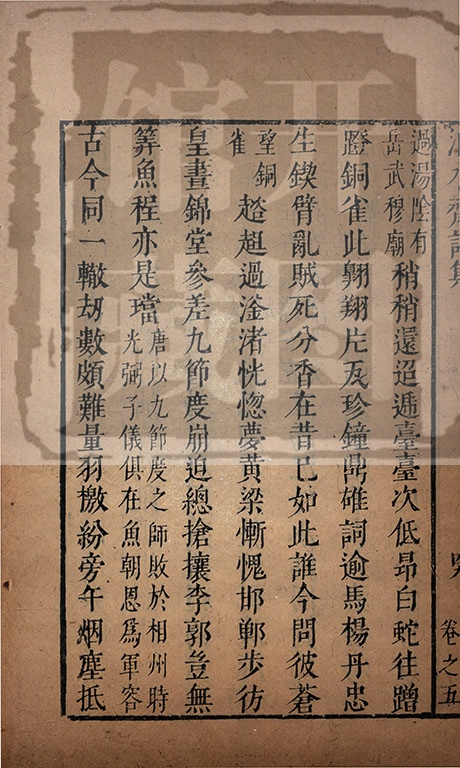 過湯陰有
岳武穆廟
稍稍還迢遞臺臺次低昂白蛇往蹭
蹬銅雀此翺翔片瓦珍鐘鼎碓詞逾馬楊丹忠
生鍥臂亂賊死分香在昔已如此誰今問彼蒼
望銅
雀
趦趄過滏渚恍惚夢黄梁慚愧邯鄲步彷
皇晝錦堂參差九節度崩迫總搶攘李郭豈無
筭魚程亦是璫
唐以九節度之師敗於相州時
光弼子儀俱在魚朝恩爲軍容
古今同一轍刼數頗難量羽檄紛旁午烟塵抵
卷之五